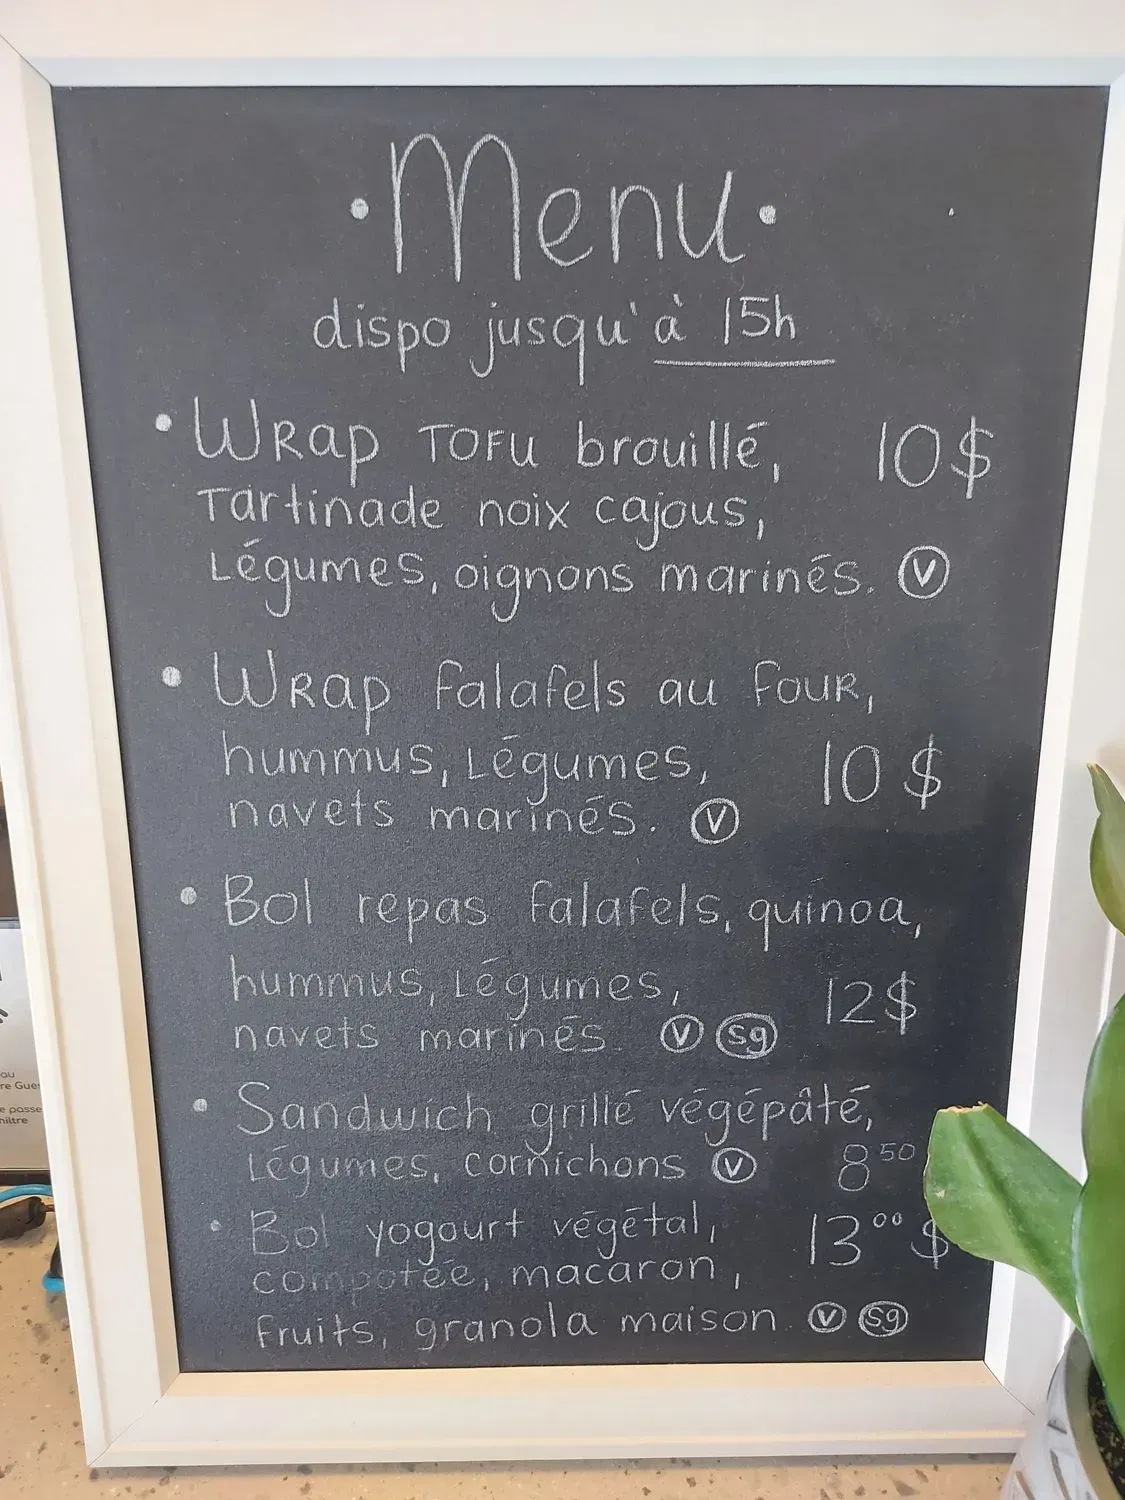 • Menu •
dispo jusqu'à 15h
• Wrap Tofu brouillé, 10$
Tartinade noix cajous,
Légumes, oignons marinés. V
• Wrap falafels au four,
hummus, Légumes, 10 $
navets marinés. V
• Bol repas falafels, quinoa,
hummus, Légumes, 12$
navets marinés. V sg
• Sandwich grillé végépâté,
Légumes, cornichons V 8 50
• Bol yogourt végétal, 13 00 $
compotée, macaron,
fruits, granola maison V sg
au